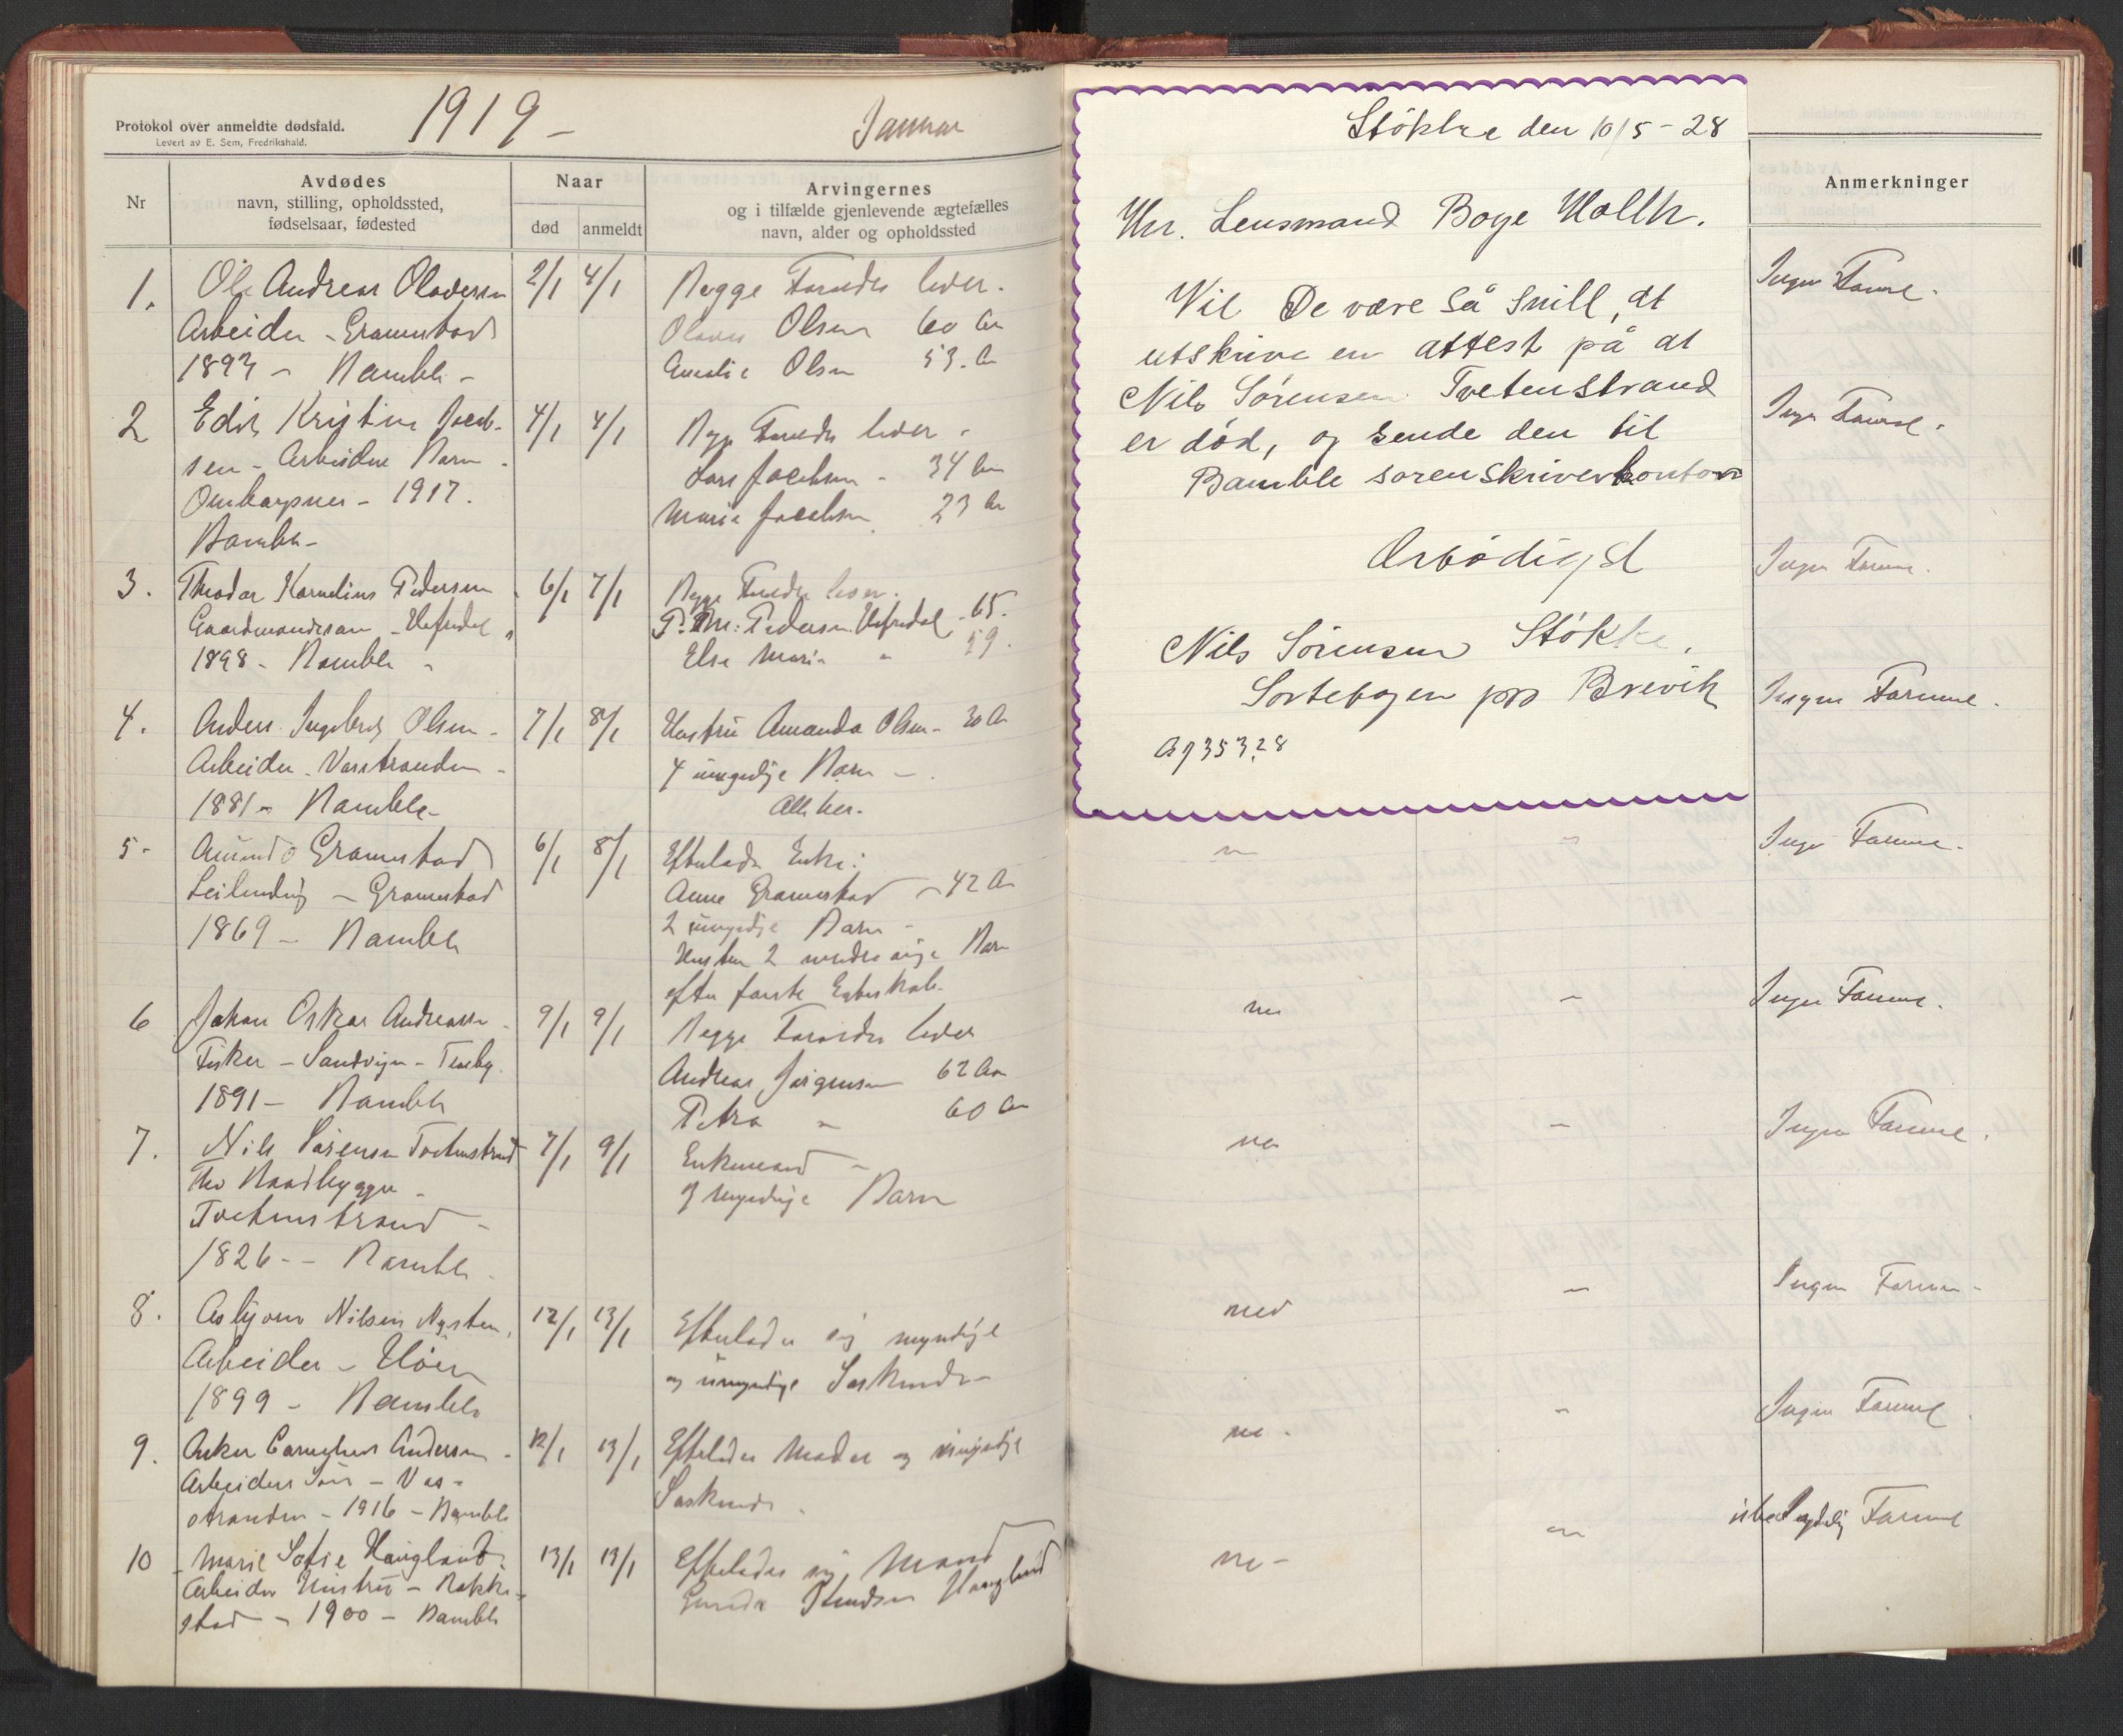 1919 –
Januar
Protokol over anmeldte dødsfald.
Levert av E. Sem, Fredrikshald.
Nr
Avdødes
navn, stilling, opholdssted,
fødselsaar, fødested
Naar
død
anmeldt
Arvingernes
og i tilfælde gjenlevende ægtefælles
navn, alder og opholdssted
1.
Ole Andreas Olavesen
Arbeider - Gramstad
1897 - Bamble -
2/1
4/1
Begge Foreldre lever.
Olaves Olsen 60 Aar
Amalie Olsen 53. Aar
2
Edit Kristine Jacob-
sen - Arbeider Barn -
- 1917.
Bamble -
4/1
4/1
Begge Foreldre lever -
Lars Jacobsen - 34 Aar
Marie Jacobsen 23 Aar
3.
Theodor Kornelius Pedersen
Gaardmandssøn - Hafredal
1898 - Bamble -
6/1
7/1
Begge Foreldre lever.
P. M. Pedersen Hafredal - 65.
Else Marie " 59.
4.
Anders Ingebret Olsen -
Arbeider - Vasstranden -
1881 - Bamble -
7/1
8/1
Hustru Amanda Olsen - 30 Aar
4 umyndige Barn -
Alle her.
5 -
Amund Gramstad
Leilending - Gramstad
1869 - Bamble
6/1
8/1
Efterlader Enke:
Anne Gramstad - 42 Aar
2 umyndige Barn -
2 Barn
efter første Egteskab.
6
Johan Oskar Andreassen -
Fisker - Sandvigen -
1891 - Bamble
9/1
9/1
Begge Foreldre lever
Andreas Jørgensen 62 Aar
Petra " 60 Aar
7.
Nils Sørensen Tvetenstrand
fhv Baadbygger -
Tvetenstrand -
1826 - - Bamble -
7/1
9/1
Enkemand -
og myndige Barn
8.
Asbjørn Nilsen
Arbeider -
1899 - Bamble
12/1
13/1
Efterlader sig myndige
og umyndige Søskende -
9.
Andersen -
Arbeiders Søn - Vas-
stranden - 1916 - Bamble
12/1
13/1
Efterlader Moder og umyndige
Søskende -
10
Marie Sofie Haugland.
Arbeider Hustru - Rakke-
stad - 1900 - Bamble
13/1
13/1
Efterlader sig Mand
Knudsen Haugland
Støkke den 10/5 - 28
Hr. Lensmand Boye Holth.
Vil De være så snill, at
utskrive en attest på at
Nils Sørensen Tvetenstrand
er død, og sende den til
Bamble sorenskriverkontor
Ærbødigst
Nils Sørensen Støkke.
Sortebogen pr Brevik
353.28
Anmerkninger
Ingen Formue -
Ingen Formue -
Ingen Formue.
Ingen Formue -
Ingen Formue -
Ingen Formue.
Ingen Formue.
Ingen Formue -
Ingen Formue
ubetydelig Formue